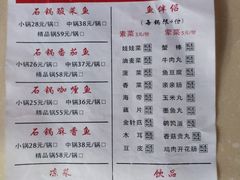 石锅酸菜鱼
小锅28元/锅□ 中锅38元/锅□
精品锅59元/锅□
石锅番茄鱼
小锅26元/锅□ 中锅36元/锅□
精品锅56元/锅□
石锅咖喱鱼
小锅25元/锅□ 中锅35元/锅□
精品锅55元/锅□
石锅麻香鱼
小锅28元/锅□ 中锅38元/锅□
精品锅58元/锅□
凉菜
鱼伴侣
素菜 5元/份
荤菜 8元/份
娃娃菜
油麦菜
菠菜
香菜
海带
土豆
金针菇
木耳
豆皮
蟹棒
牛肉丸
鱼豆腐
亲亲肠
玉米丸
鱼丸
鹌鹑蛋
香菇贡丸
鸡肉开花肠
饮品